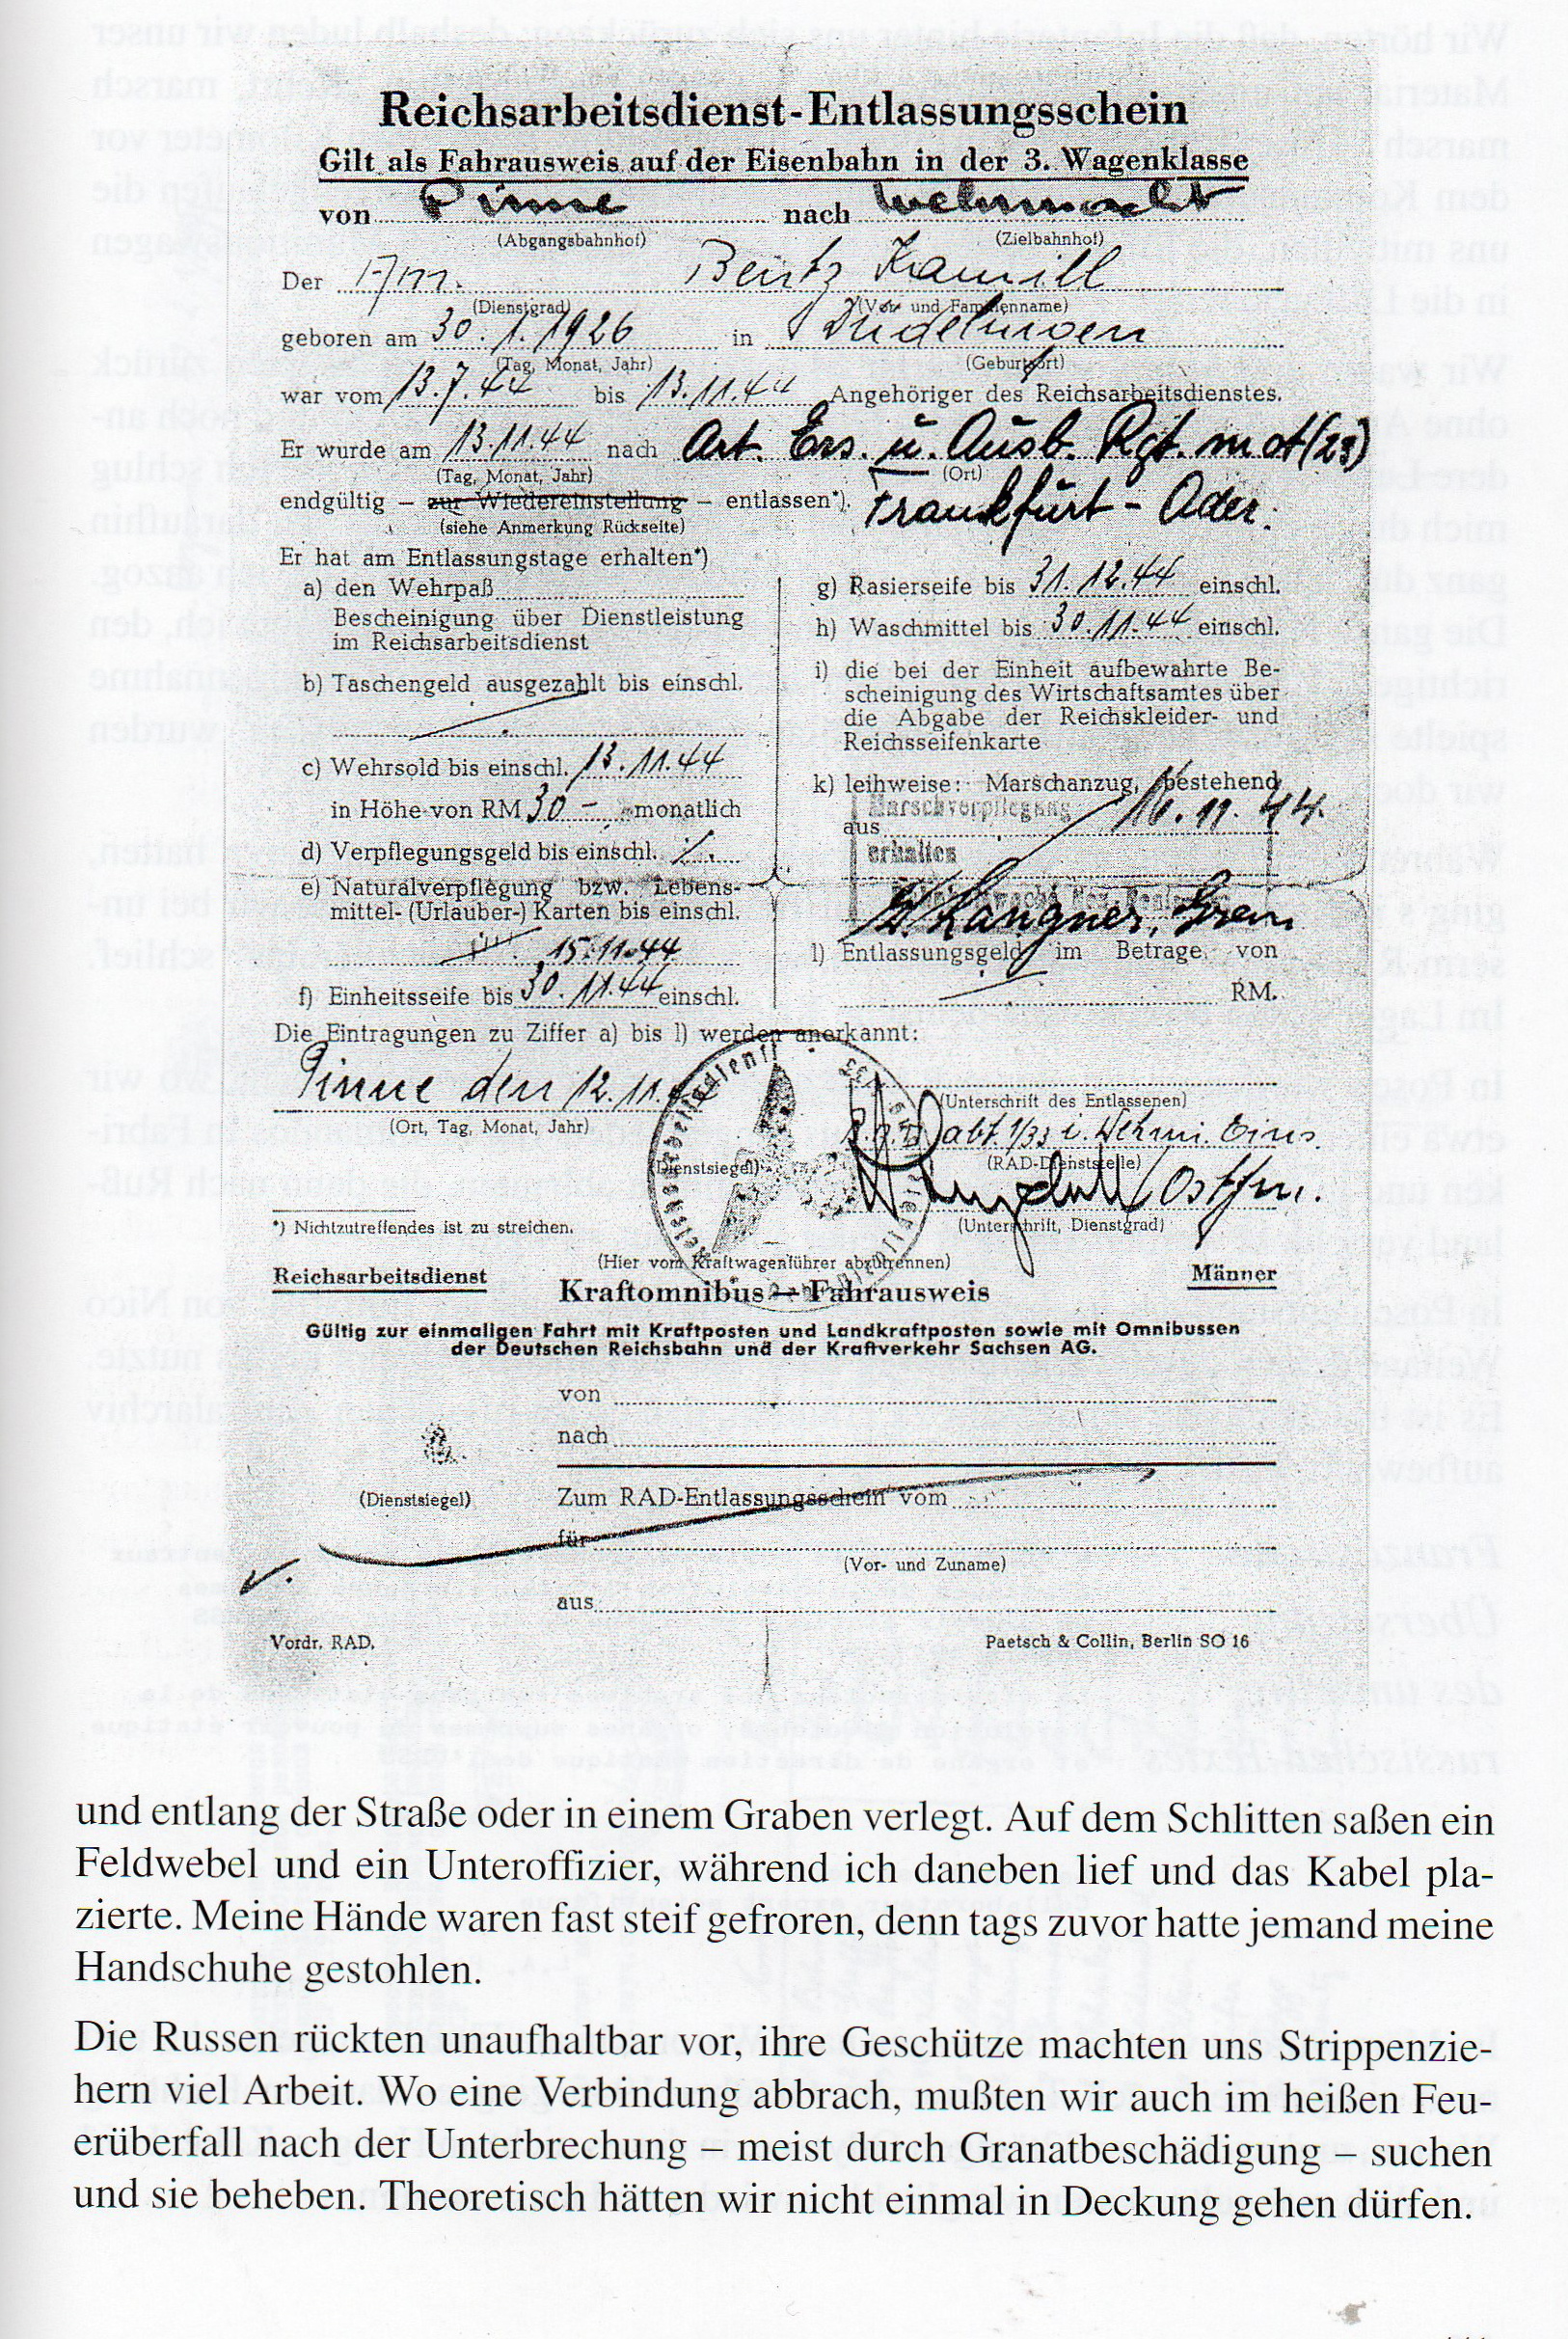 Reichsarbeitsdienst-Entlassungsschein
Gilt als Fahrausweis auf der Eisenbahn in der 3. Wagenklasse
von Pinne nach Wehrmacht
(Abgangsbahnhof) (Zielbahnhof)
Der Am. Bentz Kamill
(Dienstgrad) (Vor- und Familienname)
geboren am 30.1.1926 in Düdelingen
(Tag, Monat, Jahr) (Geburtsort)
war vom 13.7.44 bis 13.11.44 Angehöriger des Reichsarbeitsdienstes.
Er wurde am 13.11.44 nach Art. Ers. u. Ausb. Rgt. mot (23)
(Tag, Monat, Jahr) (Ort)
endgültig – zur Wiedereinstellung – entlassen*). Frankfurt - Oder.
(siehe Anmerkung Rückseite)
Er hat am Entlassungstage erhalten*)
a) den Wehrpaß
Bescheinigung über Dienstleistung
im Reichsarbeitsdienst
b) Taschengeld ausgezahlt bis einschl.
c) Wehrsold bis einschl. 13.11.44
in Höhe von RM 30 – monatlich
d) Verpflegungsgeld bis einschl.
e) Naturalverpflegung bzw. Lebens-
mittel- (Urlauber-) Karten bis einschl.
15.11.44
f) Einheitsseife bis 30.11.44 einschl.
g) Rasierseife bis 31.12.44 einschl.
h) Waschmittel bis 30.11.44 einschl.
i) die bei der Einheit aufbewahrte Be-
scheinigung des Wirtschaftsamtes über
die Abgabe der Reichskleider- und
Reichsseifenkarte
k) leihweise: Marschanzug, bestehend
Marschverpflegung 16.11.44.
aus
erhalten
Langner,
l) Entlassungsgeld im Betrage von
RM.
Die Eintragungen zu Ziffer a) bis l) werden anerkannt:
Pinne den 12.11.44
(Ort, Tag, Monat, Jahr)
(Unterschrift des Entlassenen)
abt. 1/33
(Dienstsiegel) (RAD-Dienststelle)
Ostfm.
*) Nichtzutreffendes ist zu streichen. (Unterschrift, Dienstgrad)
(Hier vom Kraftwagenführer abzutrennen)
Reichsarbeitsdienst Männer
Kraftomnibus – Fahrausweis
Gültig zur einmaligen Fahrt mit Kraftposten und Landkraftposten sowie mit Omnibussen
der Deutschen Reichsbahn und der Kraftverkehr Sachsen AG.
von
nach
(Dienstsiegel) Zum RAD-Entlassungsschein vom
für
(Vor- und Zuname)
aus
Vordr. RAD. Paetsch & Collin, Berlin SO 16
und entlang der Straße oder in einem Graben verlegt. Auf dem Schlitten saßen ein
Feldwebel und ein Unteroffizier, während ich daneben lief und das Kabel pla-
zierte. Meine Hände waren fast steif gefroren, denn tags zuvor hatte jemand meine
Handschuhe gestohlen.
Die Russen rückten unaufhaltbar vor, ihre Geschütze machten uns Strippenzie-
hern viel Arbeit. Wo eine Verbindung abbrach, mußten wir auch im heißen Feu-
erüberfall nach der Unterbrechung – meist durch Granatbeschädigung – suchen
und sie beheben. Theoretisch hätten wir nicht einmal in Deckung gehen dürfen.